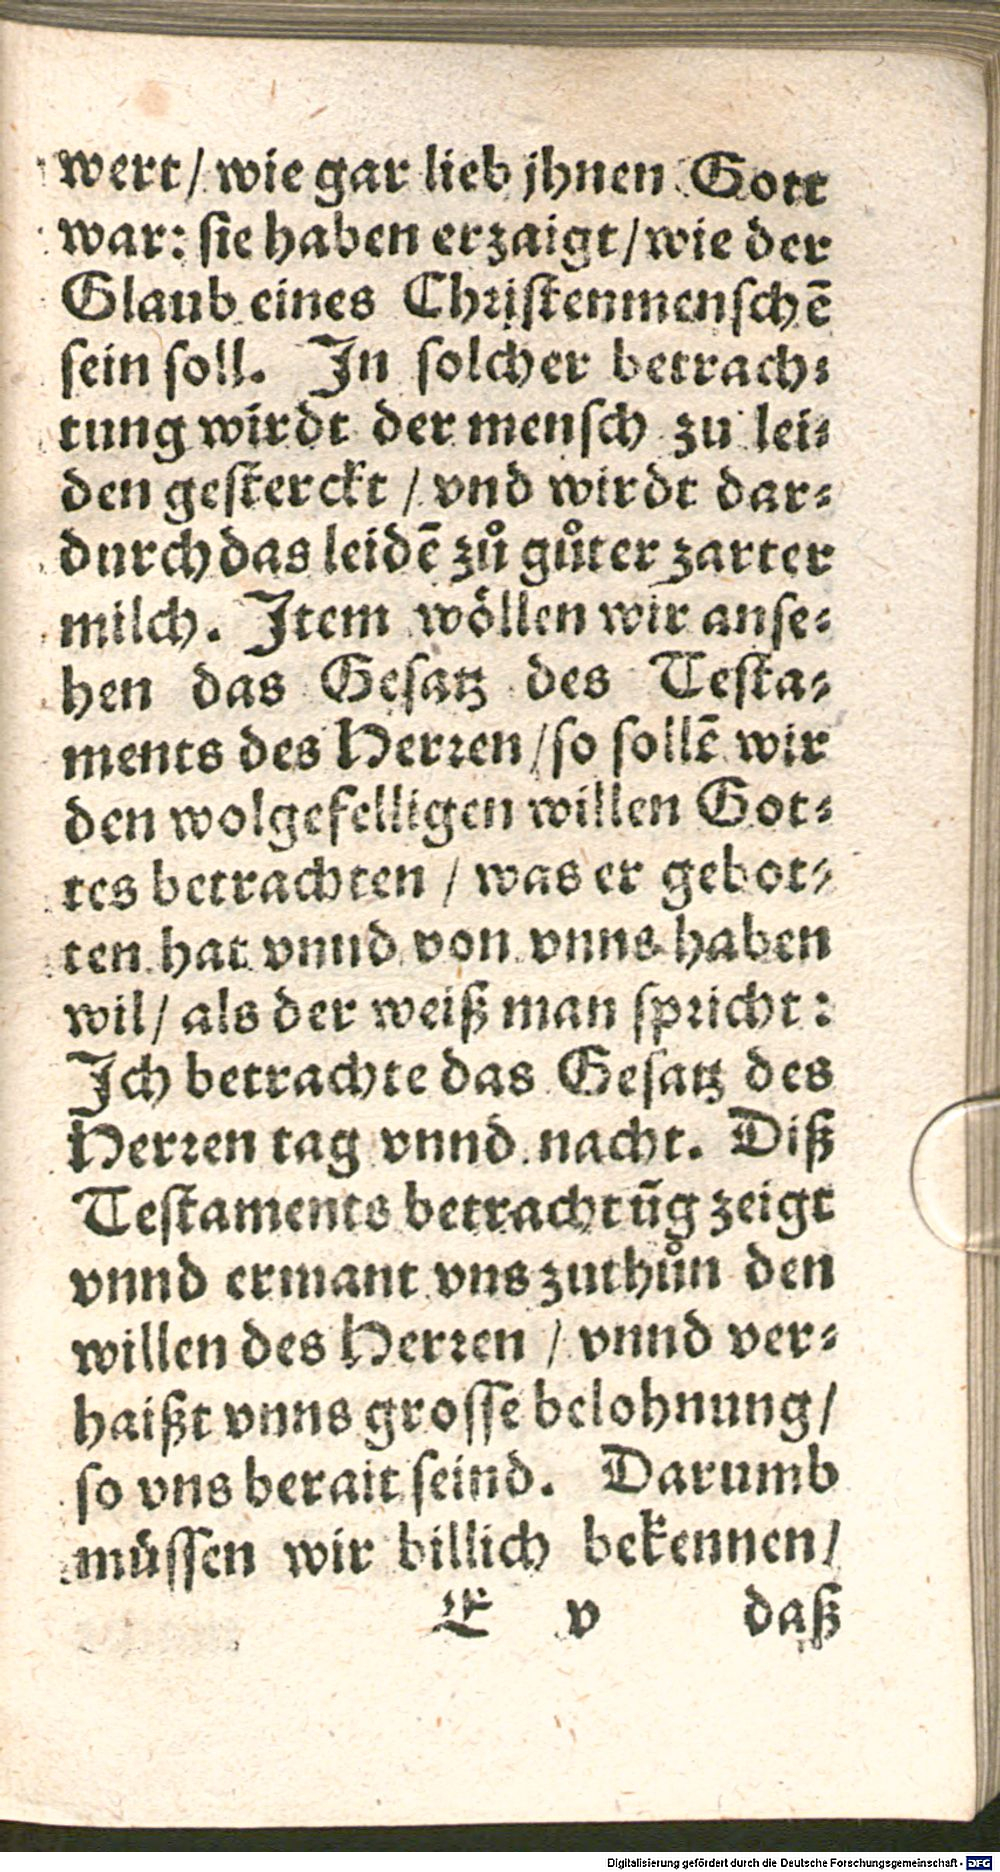 wert/ wie gar lieb jhnen Gott
war: sie haben erzaigt/ wie der
Glaub eines Christenmenschē
sein soll. In solcher betrach⸗
tung wirdt der mensch zu lei⸗
den gesterckt / vnd wirdt dar⸗
durch das leidē zů gůter zarter
milch. Item wöllen wir anse⸗
hen das Gesatz des Testa⸗
ments des Herren/ so sollē wir
den wolgefelligen willen Got⸗
tes betrachten / was er gebot⸗
ten hat vnnd von vnns haben
wil/ als der weiß man spricht:
Ich betrachte das Gesatz des
Herren tag vnnd nacht. Diß
Testaments betrachtūg zeigt
vnnd ermant vns zuthůn den
willen des Herren / vnnd ver⸗
haißt vnns grosse belohnung/
so vns berait seind. Darumb
müssen wir billich bekennen/
E v daß
Digitalisierung gefördert durch die Deutsche Forschungsgemeinschaft - DFG